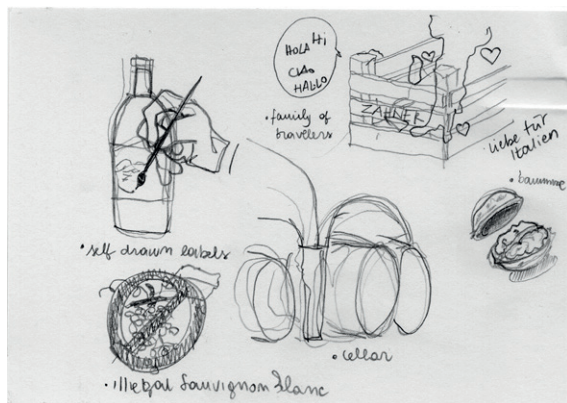 HOLA Hi
CIAO
HALLO
• family of
travelers
ZAHNER
liebe für
Italien
• self drawn labels
• cellar
• illegal Sauvignon Blanc